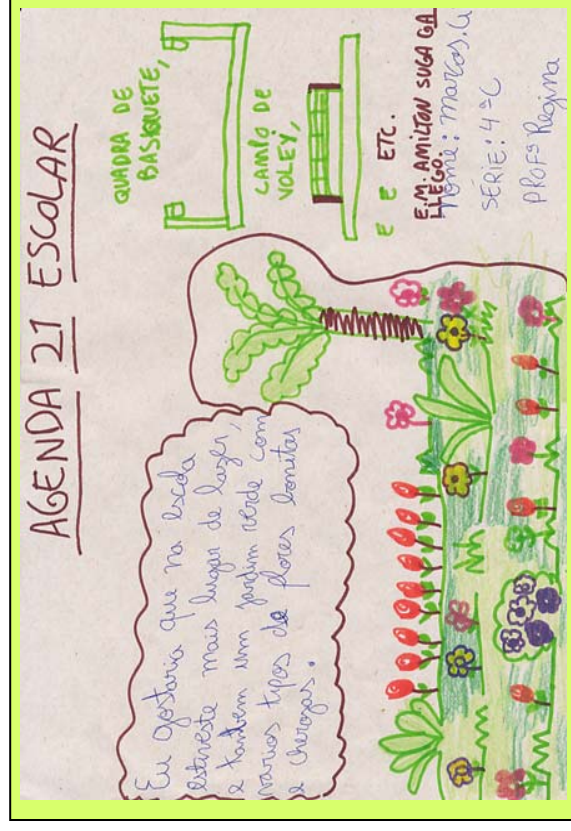 AGENDA 21 ESCOLAR
Eu gostaria que na escola
estivesse mais lugar de lazer,
e tambem um jardim verde com
varios tipos de flores bonitas
e cherozas.
QUADRA DE
BASQUETE,
CAMPO DE
VOLEY,
E E ETC.
E.M. AMILTON SUGA GA
LLEGO.
Nome: Marcos.
SÉRIE: 4ªC
PROFª Regina